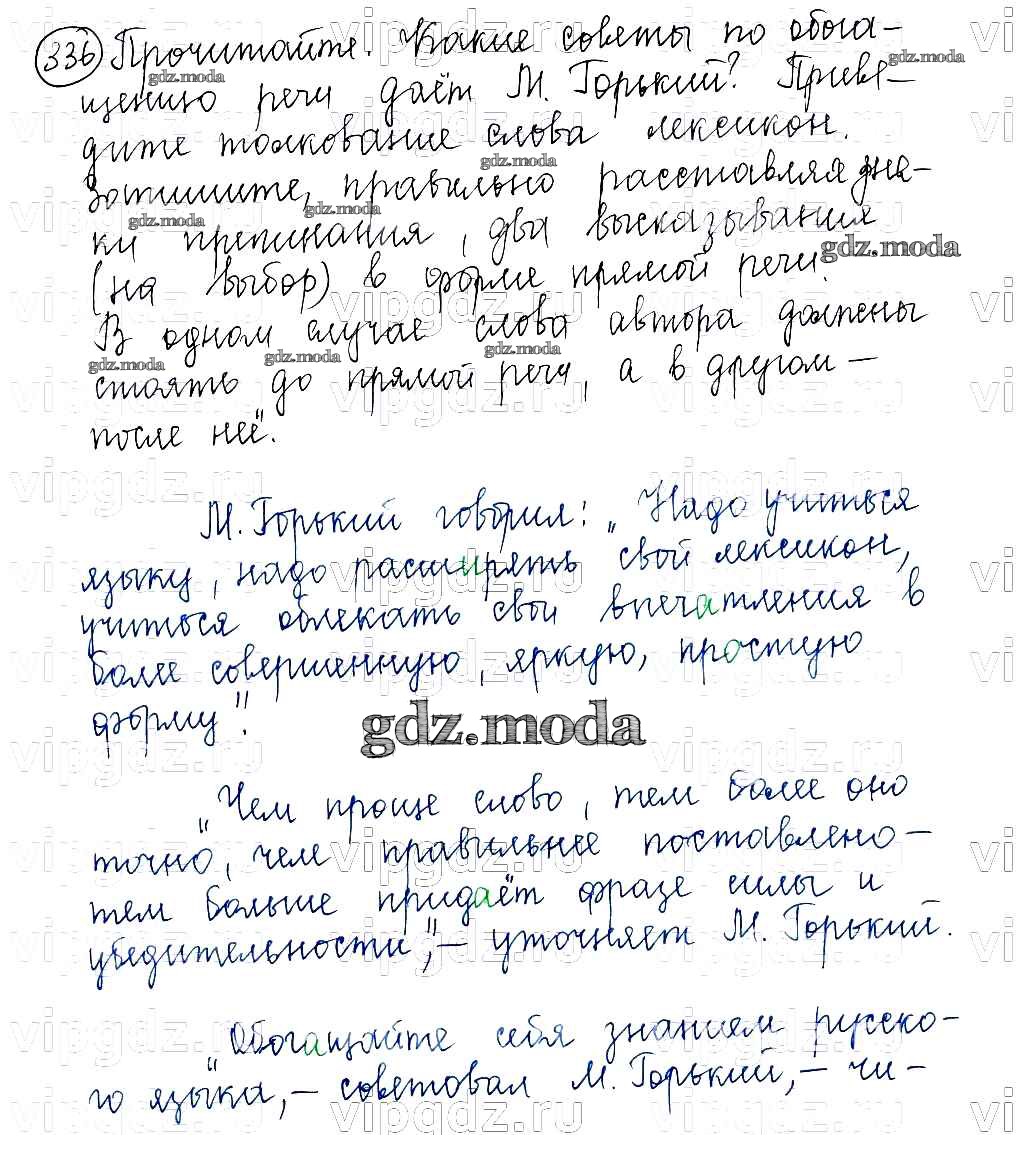 336 Прочитайте. Какие советы по обога-
щению речи даёт М. Горький? Приве-
дите толкование слова лексикон.
Запишите, правильно расставляя зна-
ки препинания, два высказывания
(на выбор) в форме прямой речи.
В одном случае слова автора должны
стоять до прямой речи, а в другом —
после неё".
М. Горький говорил: „Надо учиться
языку, надо расширять свой лексикон,
учиться облекать свои впечатления в
более совершенную, яркую, простую
форму".
gdz.moda
„Чем проще слово, тем более оно
точно, чем правильнее поставлено-
тем больше придаёт фразе силы и
убедительности", — уточняет М. Горький.
„Обогащайте себя знанием русско-
го языка, — советовал М. Горький, — чи-